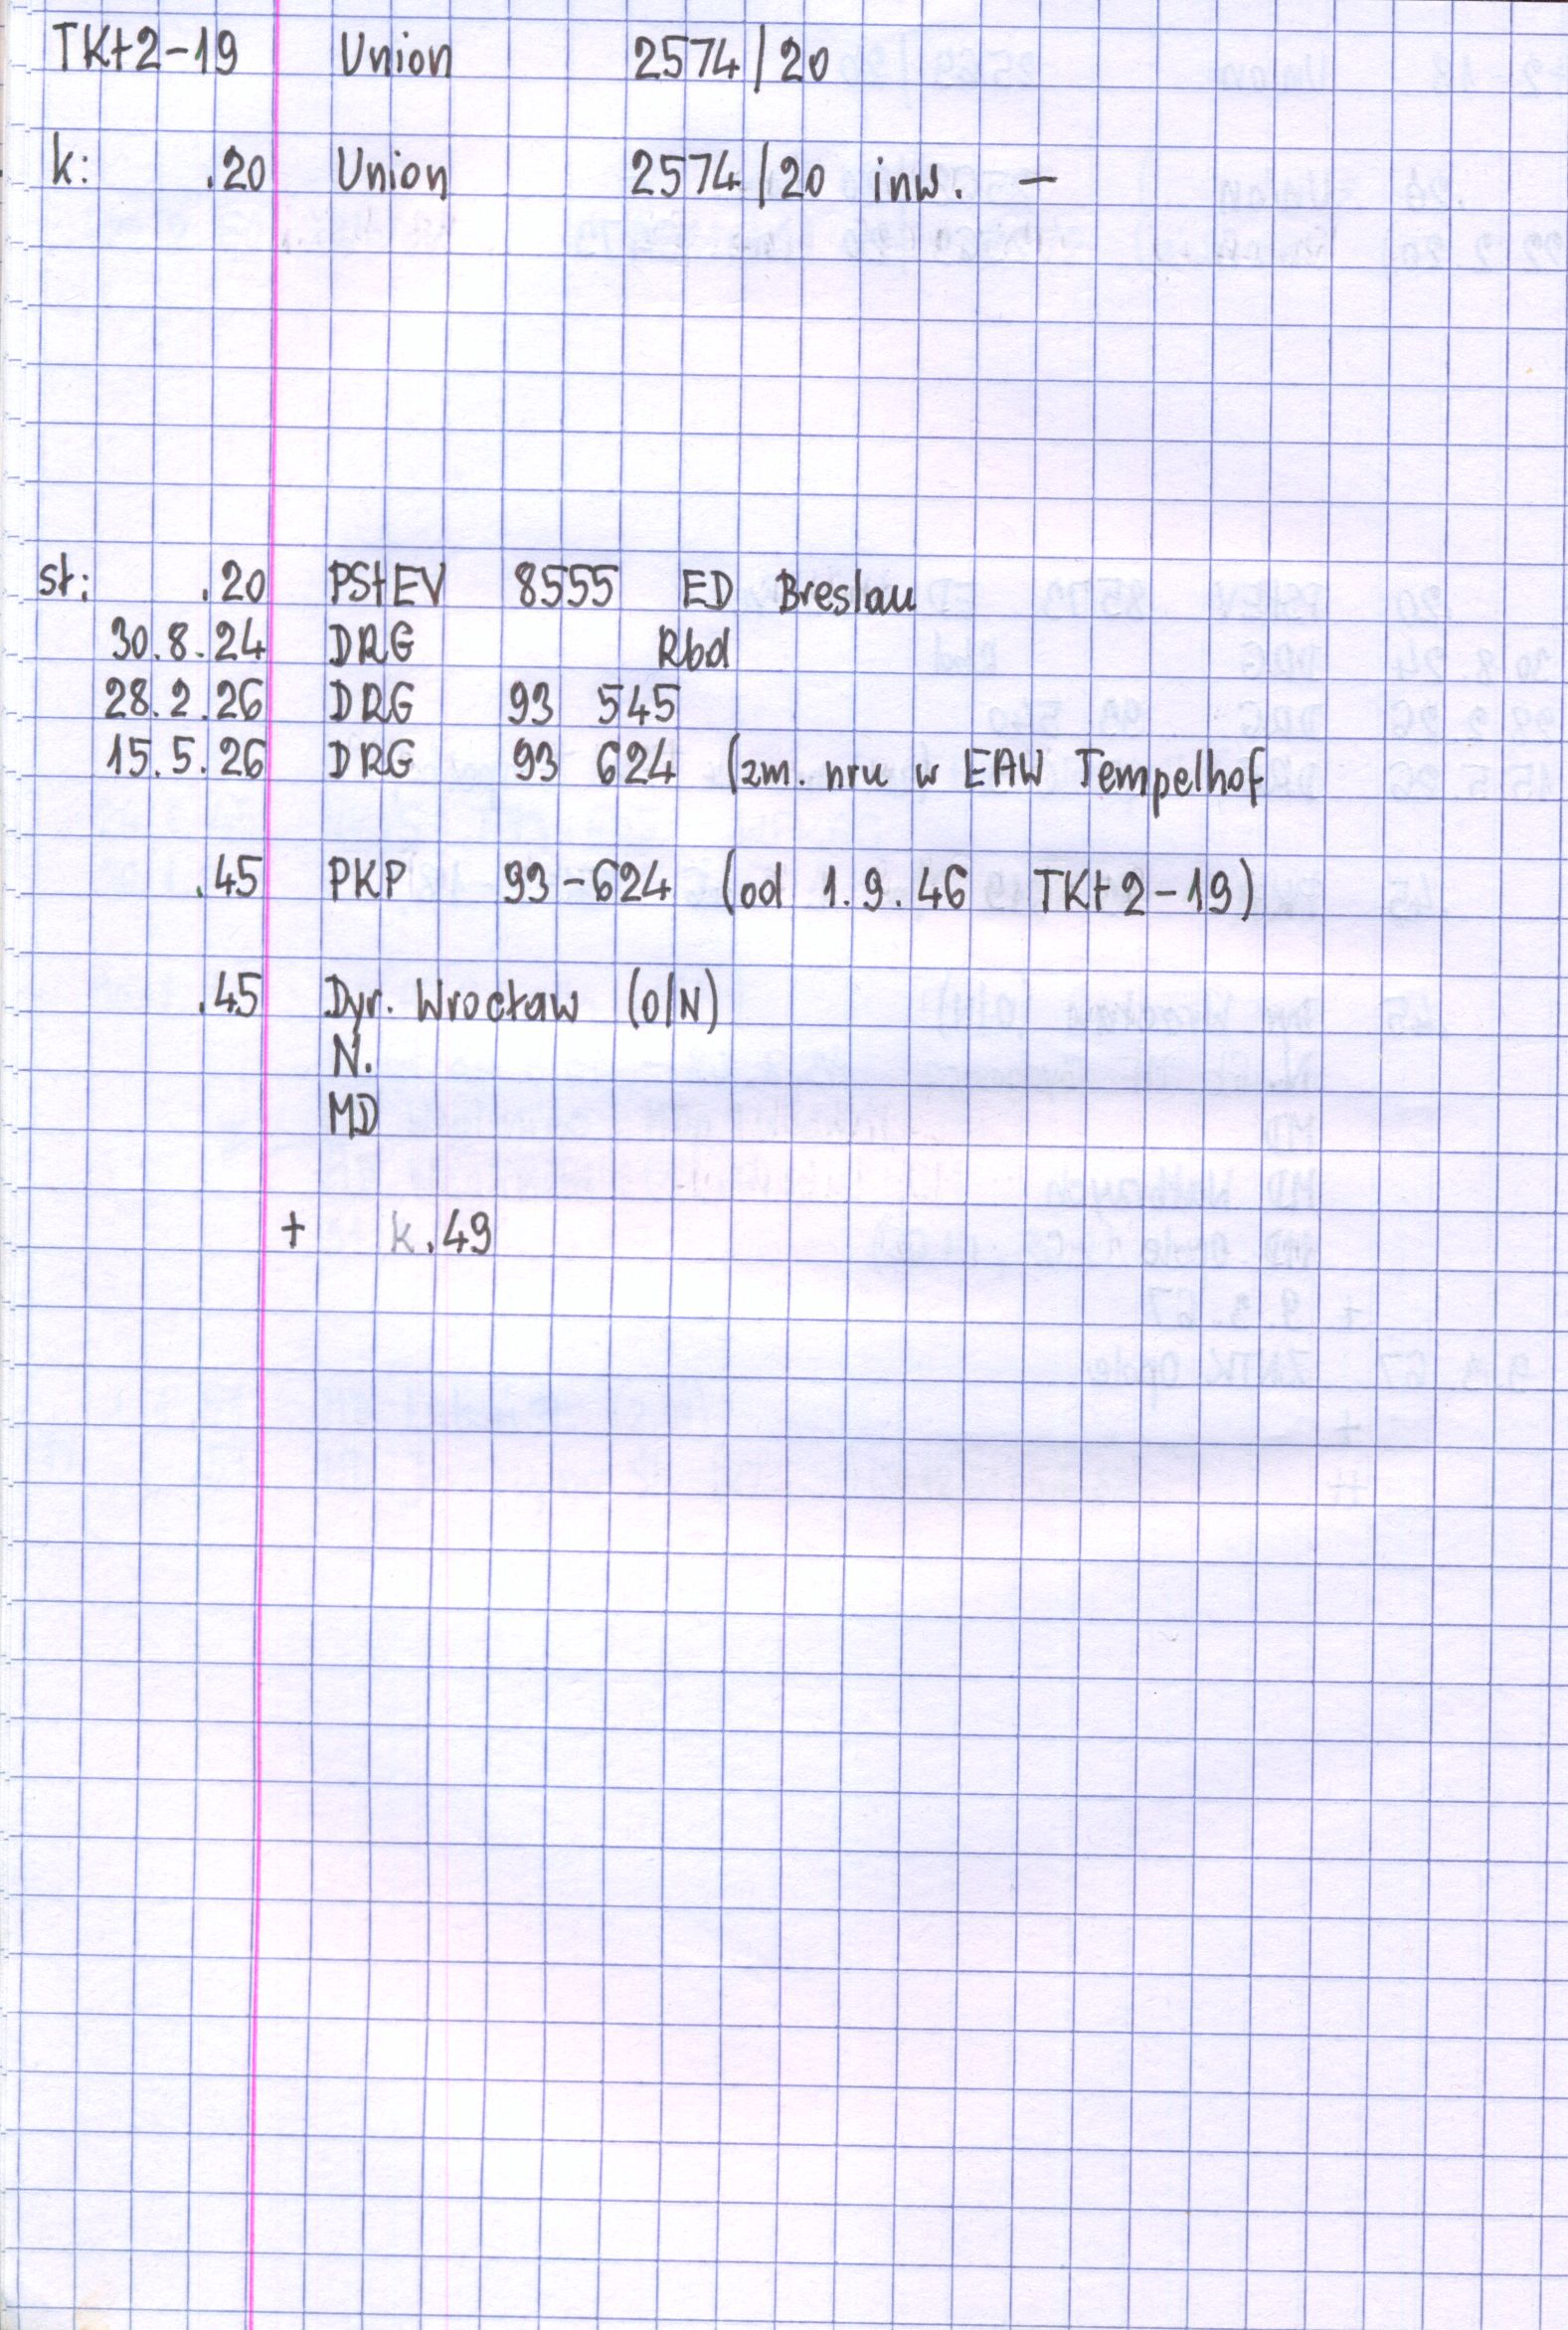 TKt2-19 Union 2574/20
k: .20 Union 2574/20 inw. —
st: .20 PStEV 8555 ED Breslau
30.8.24 DRG Rbd
28.2.26 DRG 93 545
15.5.26 DRG 93 624 (zm. nru w EAW Tempelhof
.45 PKP 93-624 (od 1.9.46 TKt2-19)
.45 Dyr. Wrocław (O/N)
N.
MD
+ k.49